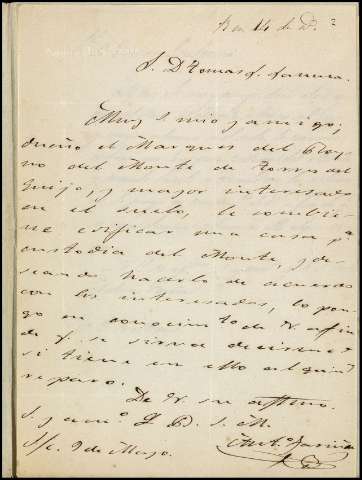 14 de
S. D. Tomas
Muy S. mio y amigo;
dueño el Marques del
no del Monte de Torres del
y mayor interesado
en el suelo, le combie-
ne edificar una casa pª
custodia del Monte, y de-
seando hacerlo de acuerdo
con los interesados, lo pon-
go en conocimto de V. a fin
de V. se sirva decirme
si tiene en ello algun
reparo.
De V. su affmo.
S. y amº. Q. B. S. M.
S/c. 9 de Mayo.